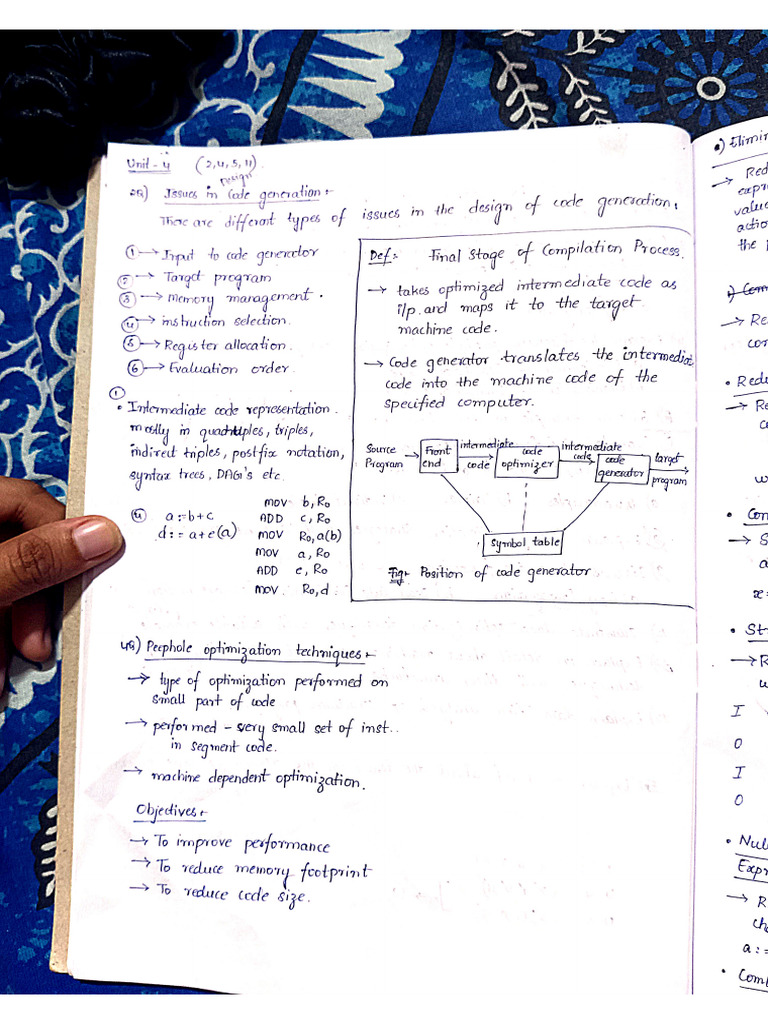 Unit - 4 (2,4,5,11)
Design
2Q) Issues in Code generation:-
There are different types of issues in the design of code generation.
① → Input to code generator
② → Target program
③ → Memory management.
④ → instruction selection.
⑤ → Register allocation.
⑥ → Evaluation order.
①
• Intermediate code representation.
mostly in quadruples, triples,
indirect triples, postfix notation,
syntax trees, DAG's etc.
④ a := b+c
d := a+e (a)
MOV b, R0
ADD c, R0
MOV R0, a (b)
MOV a, R0
ADD e, R0
MOV R0, d.
Def:- Final Stage of Compilation Process.
→ takes optimized intermediate code as
i/p. and maps it to the target
machine code.
→ Code generator translates the intermediate
code into the machine code of the
specified computer.
Source Program
Front end
intermediate code
code optimizer
intermediate code
code generator
target program
Symbol table
Fig:- Position of code generator
4Q) Peephole optimization techniques:-
→ type of optimization performed on
small part of code
→ performed - very small set of inst..
in segment code.
→ machine dependent optimization.
Objectives:-
→ To improve performance
→ To reduce memory footprint
→ To reduce code size.
→ Red
valu
actio
the
→ Re
con
• Redu
→ Re
• Con
→ S
x=
• Str
→ R
I
O
I
O
• Nul
Expr
→ R
cha
a :=
• Comb